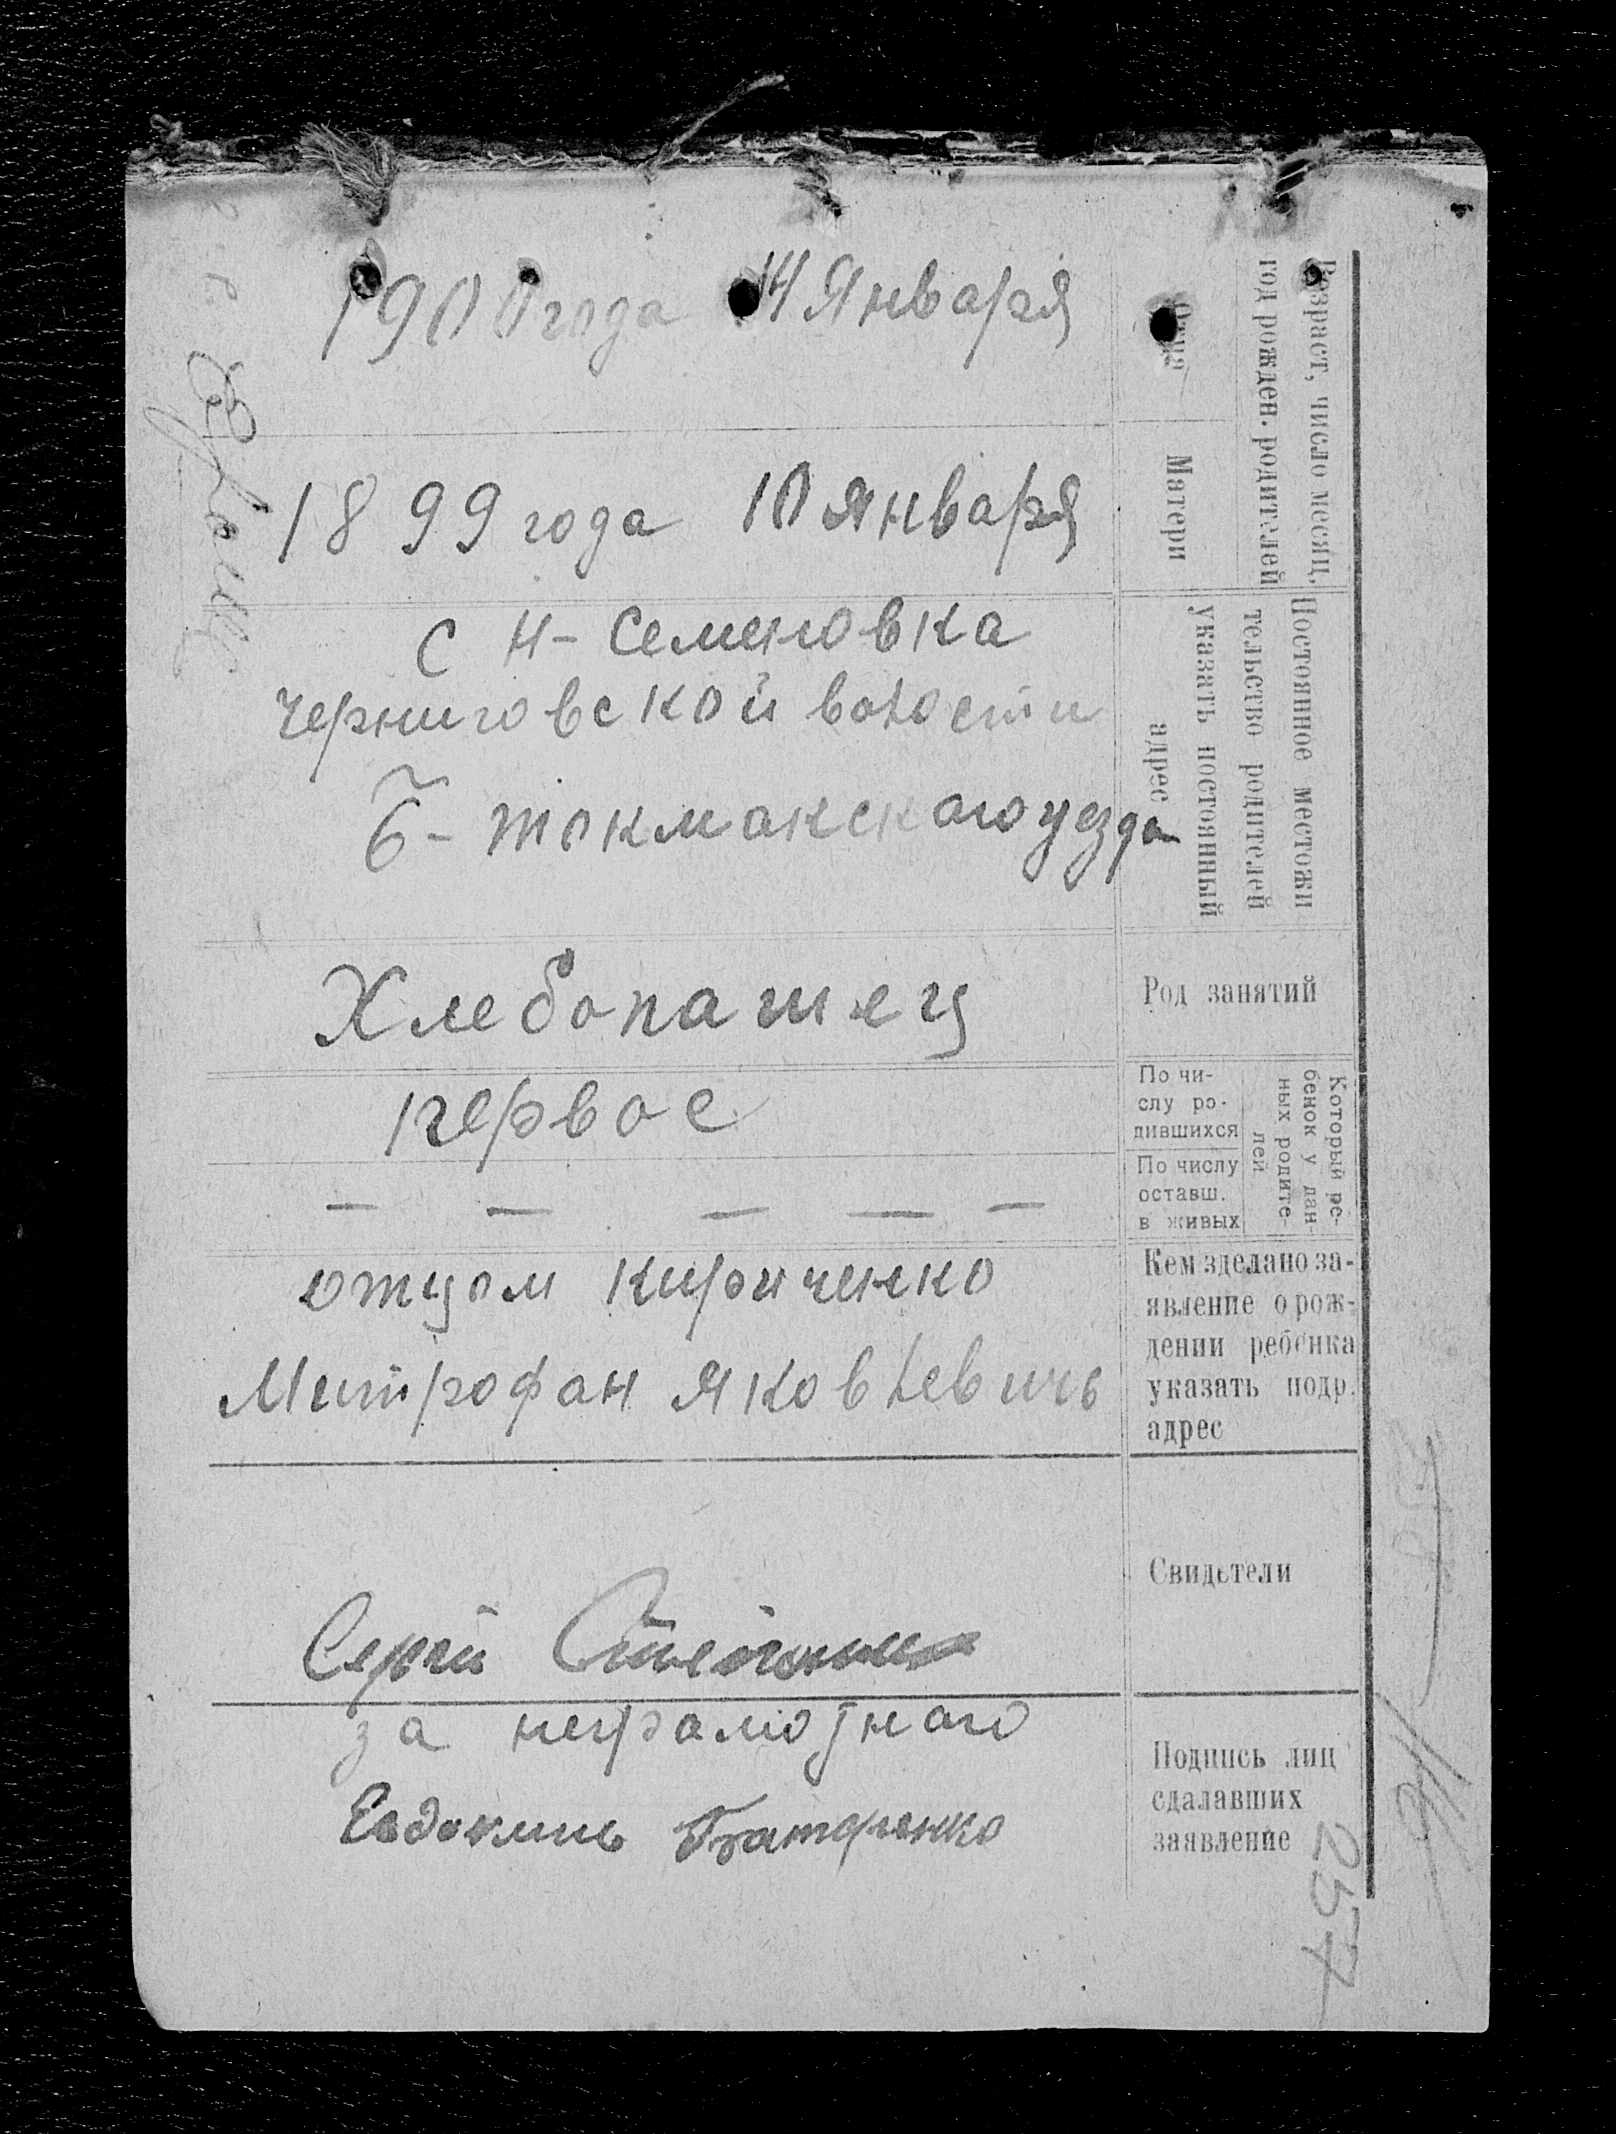 Возраст, число месяц,
год рожден. родителей
Отца
1900 года 14 Января
Матери
1899 года 10 января
Постоянное местожи
тельство родителей
указать постоянный
адрес
с Н-Семеновка
Черниговской волости
Б-Токмакскаго уезда
Род занятий
Хлебопашец
Который ре-
бенок у дан-
ных родите-
лей
По чи-
слу ро-
дившихся
первое
По числу
оставш.
в живых
— — — — —
Кем зделано за-
явление о рож-
дении ребенка
указать подр.
адрес
отцом Кириченко
Митрофан Яковлевичь
Свидетели
Сергй
Подпись лиц
сдалавших
заявление
за неграмотнаго
Евдокимъ
257